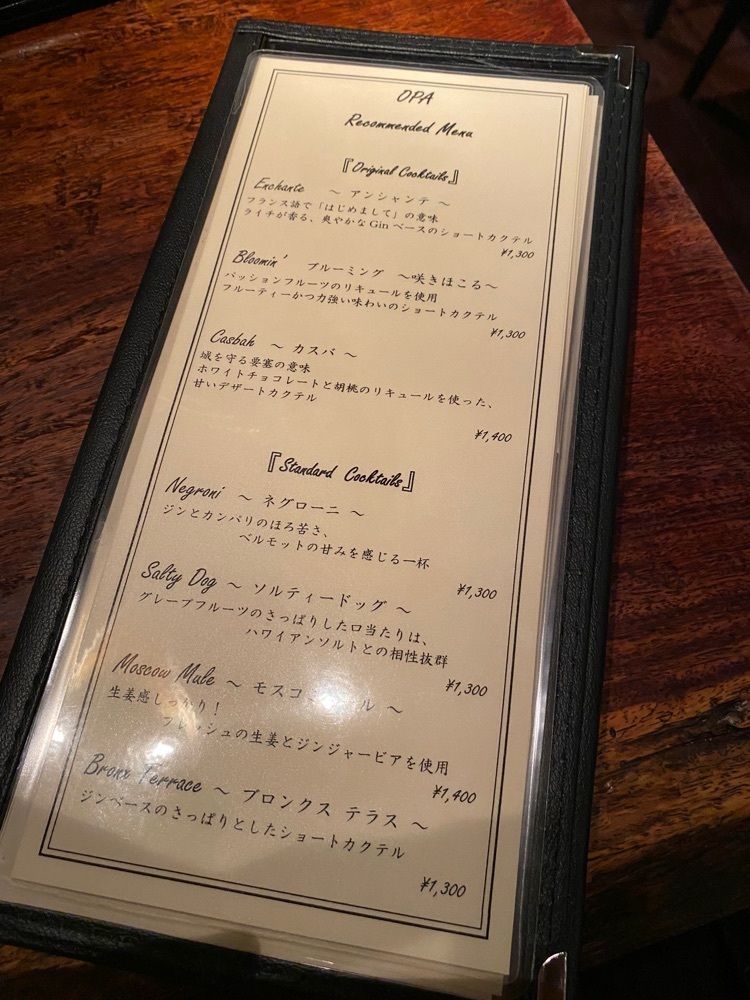 OPA
Recommended Menu
『Original Cocktails』
Enchante ～ アンシャンテ ～
フランス語で「はじめまして」の意味
ライチが香る、爽やかな Gin ベースのショートカクテル
¥1,300
Bloomin' ブルーミング ～咲きほこる～
パッションフルーツのリキュールを使用
フルーティーかつ力強い味わいのショートカクテル
¥1,300
Casbah ～ カスバ ～
城を守る要塞の意味
ホワイトチョコレートと胡桃のリキュールを使った、
甘いデザートカクテル
¥1,400
『Standard Cocktails』
Negroni ～ ネグローニ ～
ジンとカンパリのほろ苦さ、
ベルモットの甘みを感じる一杯
¥1,300
Salty Dog ～ ソルティードッグ ～
グレープフルーツのさっぱりした口当たりは、
ハワイアンソルトとの相性抜群
¥1,300
Moscow Mule ～ モスコミュール ～
生姜感しっかり！
フレッシュの生姜とジンジャービアを使用
¥1,400
Bronx Terrace ～ ブロンクス テラス ～
ジンベースのさっぱりとしたショートカクテル
¥1,300